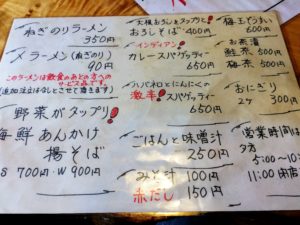 ねぎのりラーメン
350円
〆ラーメン(ねぎのり)
90円
このラーメンは飲食のあとの方への
サービス品です。
(追加注文はなしとさせて頂きます)
野菜がタップリ
海鮮あんかけ
揚そば
S 700円・W 900円
大根おろしをタップリと!
おろしそば 400円
インディアン!
カレースパゲッティー
650円
ハバネロとにんにくの
激辛!スパゲッティー
650円
ごはんと味噌汁
250円
みそ汁 100円
赤だし 150円
梅玉ぞうすい
600円
お茶漬
鮭茶 500円
梅茶 500円
おにぎり
2ケ 300円
営業時間は
夕方
5:00〜10
11:00 閉店